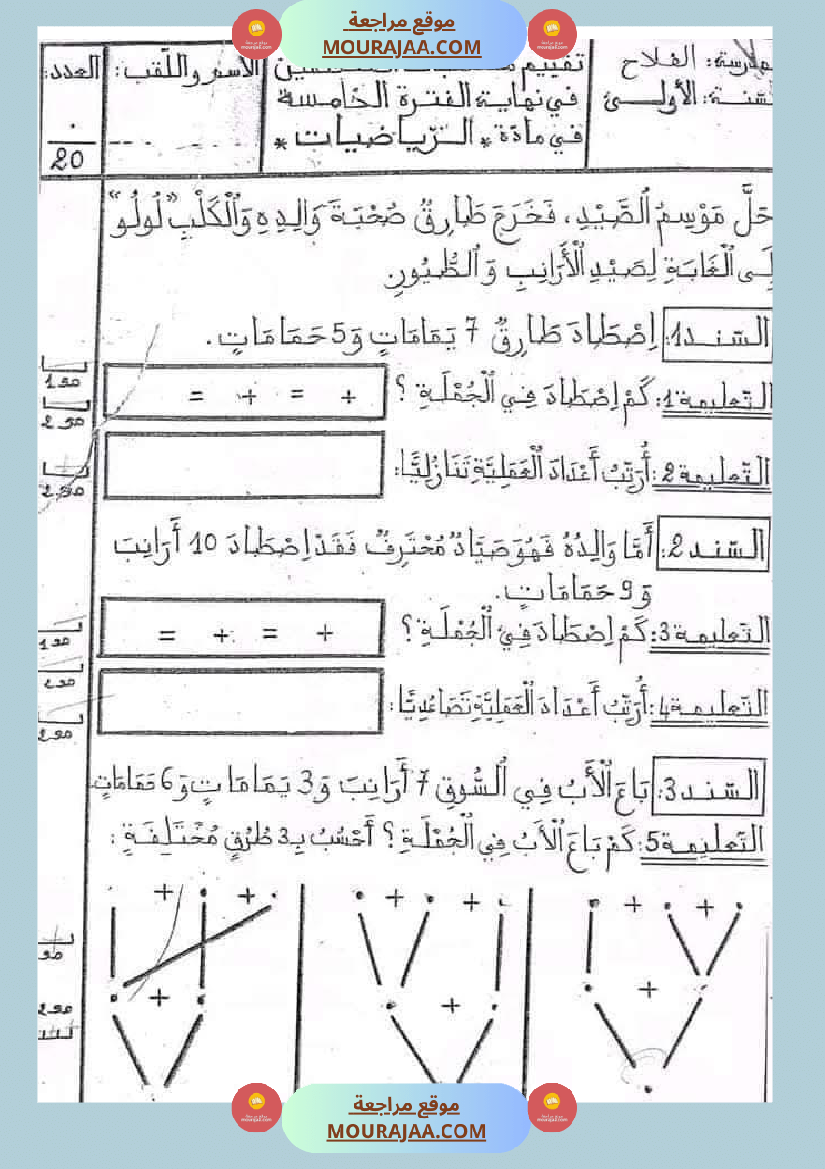 موقع مراجعة
MOURAJAA.COM
مدرسة: الفلاح
السّنة: الأولى
في نهاية الفترة الخامسة
في مادّة * الرّياضيات *
الاسم واللّقب:
العدد:
20
حَلَّ مَوْسِمُ الصَّيْدِ، فَخَرَجَ طَارِقُ صُحْبَةَ وَالِدِهِ وَالْكَلْبِ "لُولُو"
إِلَى الْغَابَةِ لِصَيْدِ الْأَرَانِبِ وَ الطُّيُورِ
السّند1: إِصْطَادَ طَارِقُ 7 يَمَامَاتٍ وَ5 حَمَامَاتٍ.
التّعليمة1: كَمْ اِصْطَادَ فِي الْجُمْلَةِ ؟
+ = + =
التّعليمة2: أُرَتِّبُ أَعْدَادَ الْعَمَلِيَّةِ تَنَازُلِيًّا:
السّند2: أَمَّا وَالِدُهُ فَهُوَ صَيَّادٌ مُحْتَرِفٌ فَقَدْ اِصْطَادَ 10 أَرَانِبَ
وَ 9 حَمَامَاتٍ.
التّعليمة3: كَمْ اِصْطَادَ فِي الْجُمْلَةِ ؟
+ = + =
التّعليمة4: أُرَتِّبُ أَعْدَادَ الْعَمَلِيَّةِ تَصَاعُدِيًّا:
السّند3: بَاعَ الْأَبُ فِي السُّوقِ 7 أَرَانِبَ وَ3 يَمَامَاتٍ وَ6 حَمَامَاتٍ
التّعليمة5: كَمْ بَاعَ الْأَبُ فِي الْجُمْلَةِ ؟ أَحْسُبُ بِـ3 طُرُقٍ مُخْتَلِفَةٍ :
+ + + + + +
+ + +
موقع مراجعة
MOURAJAA.COM